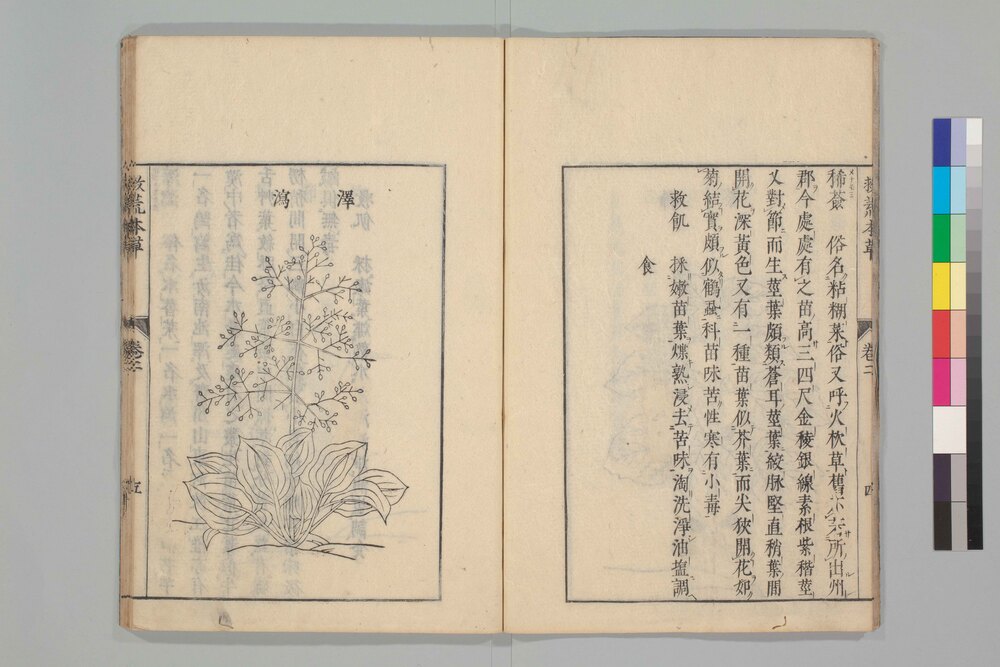 救荒本草 卷二 四
稀薟 俗名粘糊菜俗又呼火杴草舊不 所出州
郡今處處有之苗高三四尺金稜銀線素根紫稭莖
叉對節而生莖葉頗類蒼耳莖葉紋脉堅直稍葉間
開花深黃色又有一種苗葉似芥葉而尖狹開花如
菊結實頗似鶴蝨科苗味苦性寒有小毒
救飢 採嫩苗葉煠熟浸去苦味淘洗淨油塩調
食
澤
瀉
救荒本草 卷二 五